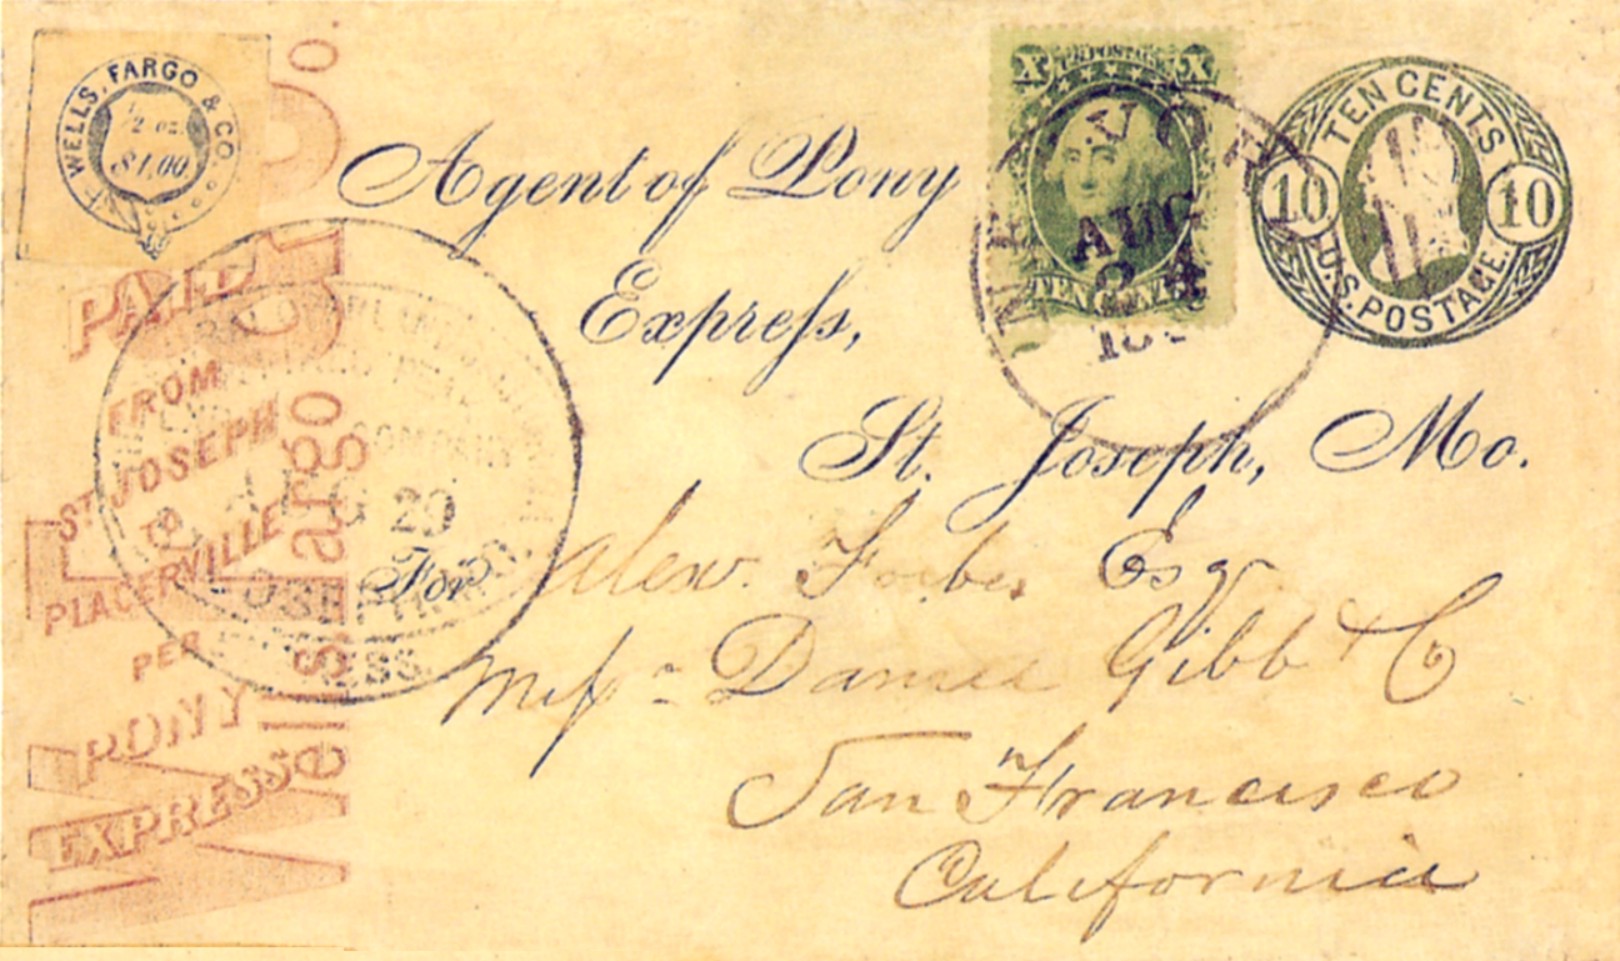 WELLS, FARGO & CO.
1/2 oz.
$1.00
Wells Fargo & Co.
PAID
FROM
ST JOSEPH
TO
PLACERVILLE
PER
PONY
EXPRESS
Agent of Pony
Expreſs,
St. Joseph, Mo.
U.S. POSTAGE
X X
TEN CENTS
NEW YORK
AUG
TEN CENTS
10 10
U.S. POSTAGE.
COMPANY
20
For Alexr. Forbes Esq
Meſs Daniel Gibb & Co
San Francisco
California